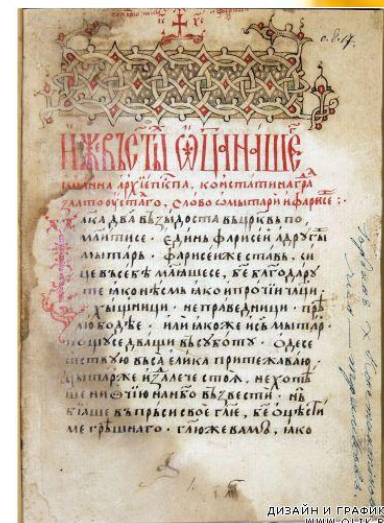 И҆́ЖЕ ВЪ СТ҃Ы ѾЦА НА́ШЕ
І҆ѡанна архїепк҃па, константинагра
златоѹстаго, слово ѡ мытари и фарисе :·
ака два въз̾ыдоста въ цр҃ковь по
молитисе · единь фарисеи а дрѹгы
мытарь · фарисеи же ставь, си
це въ себѣ млꙗше се, бе҃ благодарѹ
те ꙗко нѣсмь ꙗко и прочїи чл҃ци ·
хыщници · неправедници · прѣ
любодѣе · или ꙗкоже и сь мытар
пощѹсе два щи въ сѹботѹ · одесе
ствѹю въса елика притежаваю ·
мытарь же из̾далече стоѧ, не хотѣ
ше ни ѻчїю на нб҃о възвести · нь
бїаше въ прьси свое гл҃е, бе҃ оцѣсти
ме грѣшнаго · гл҃ю же вамь, ꙗко
ДИЗАЙН И ГРАФИК
WWW.OLIK.P